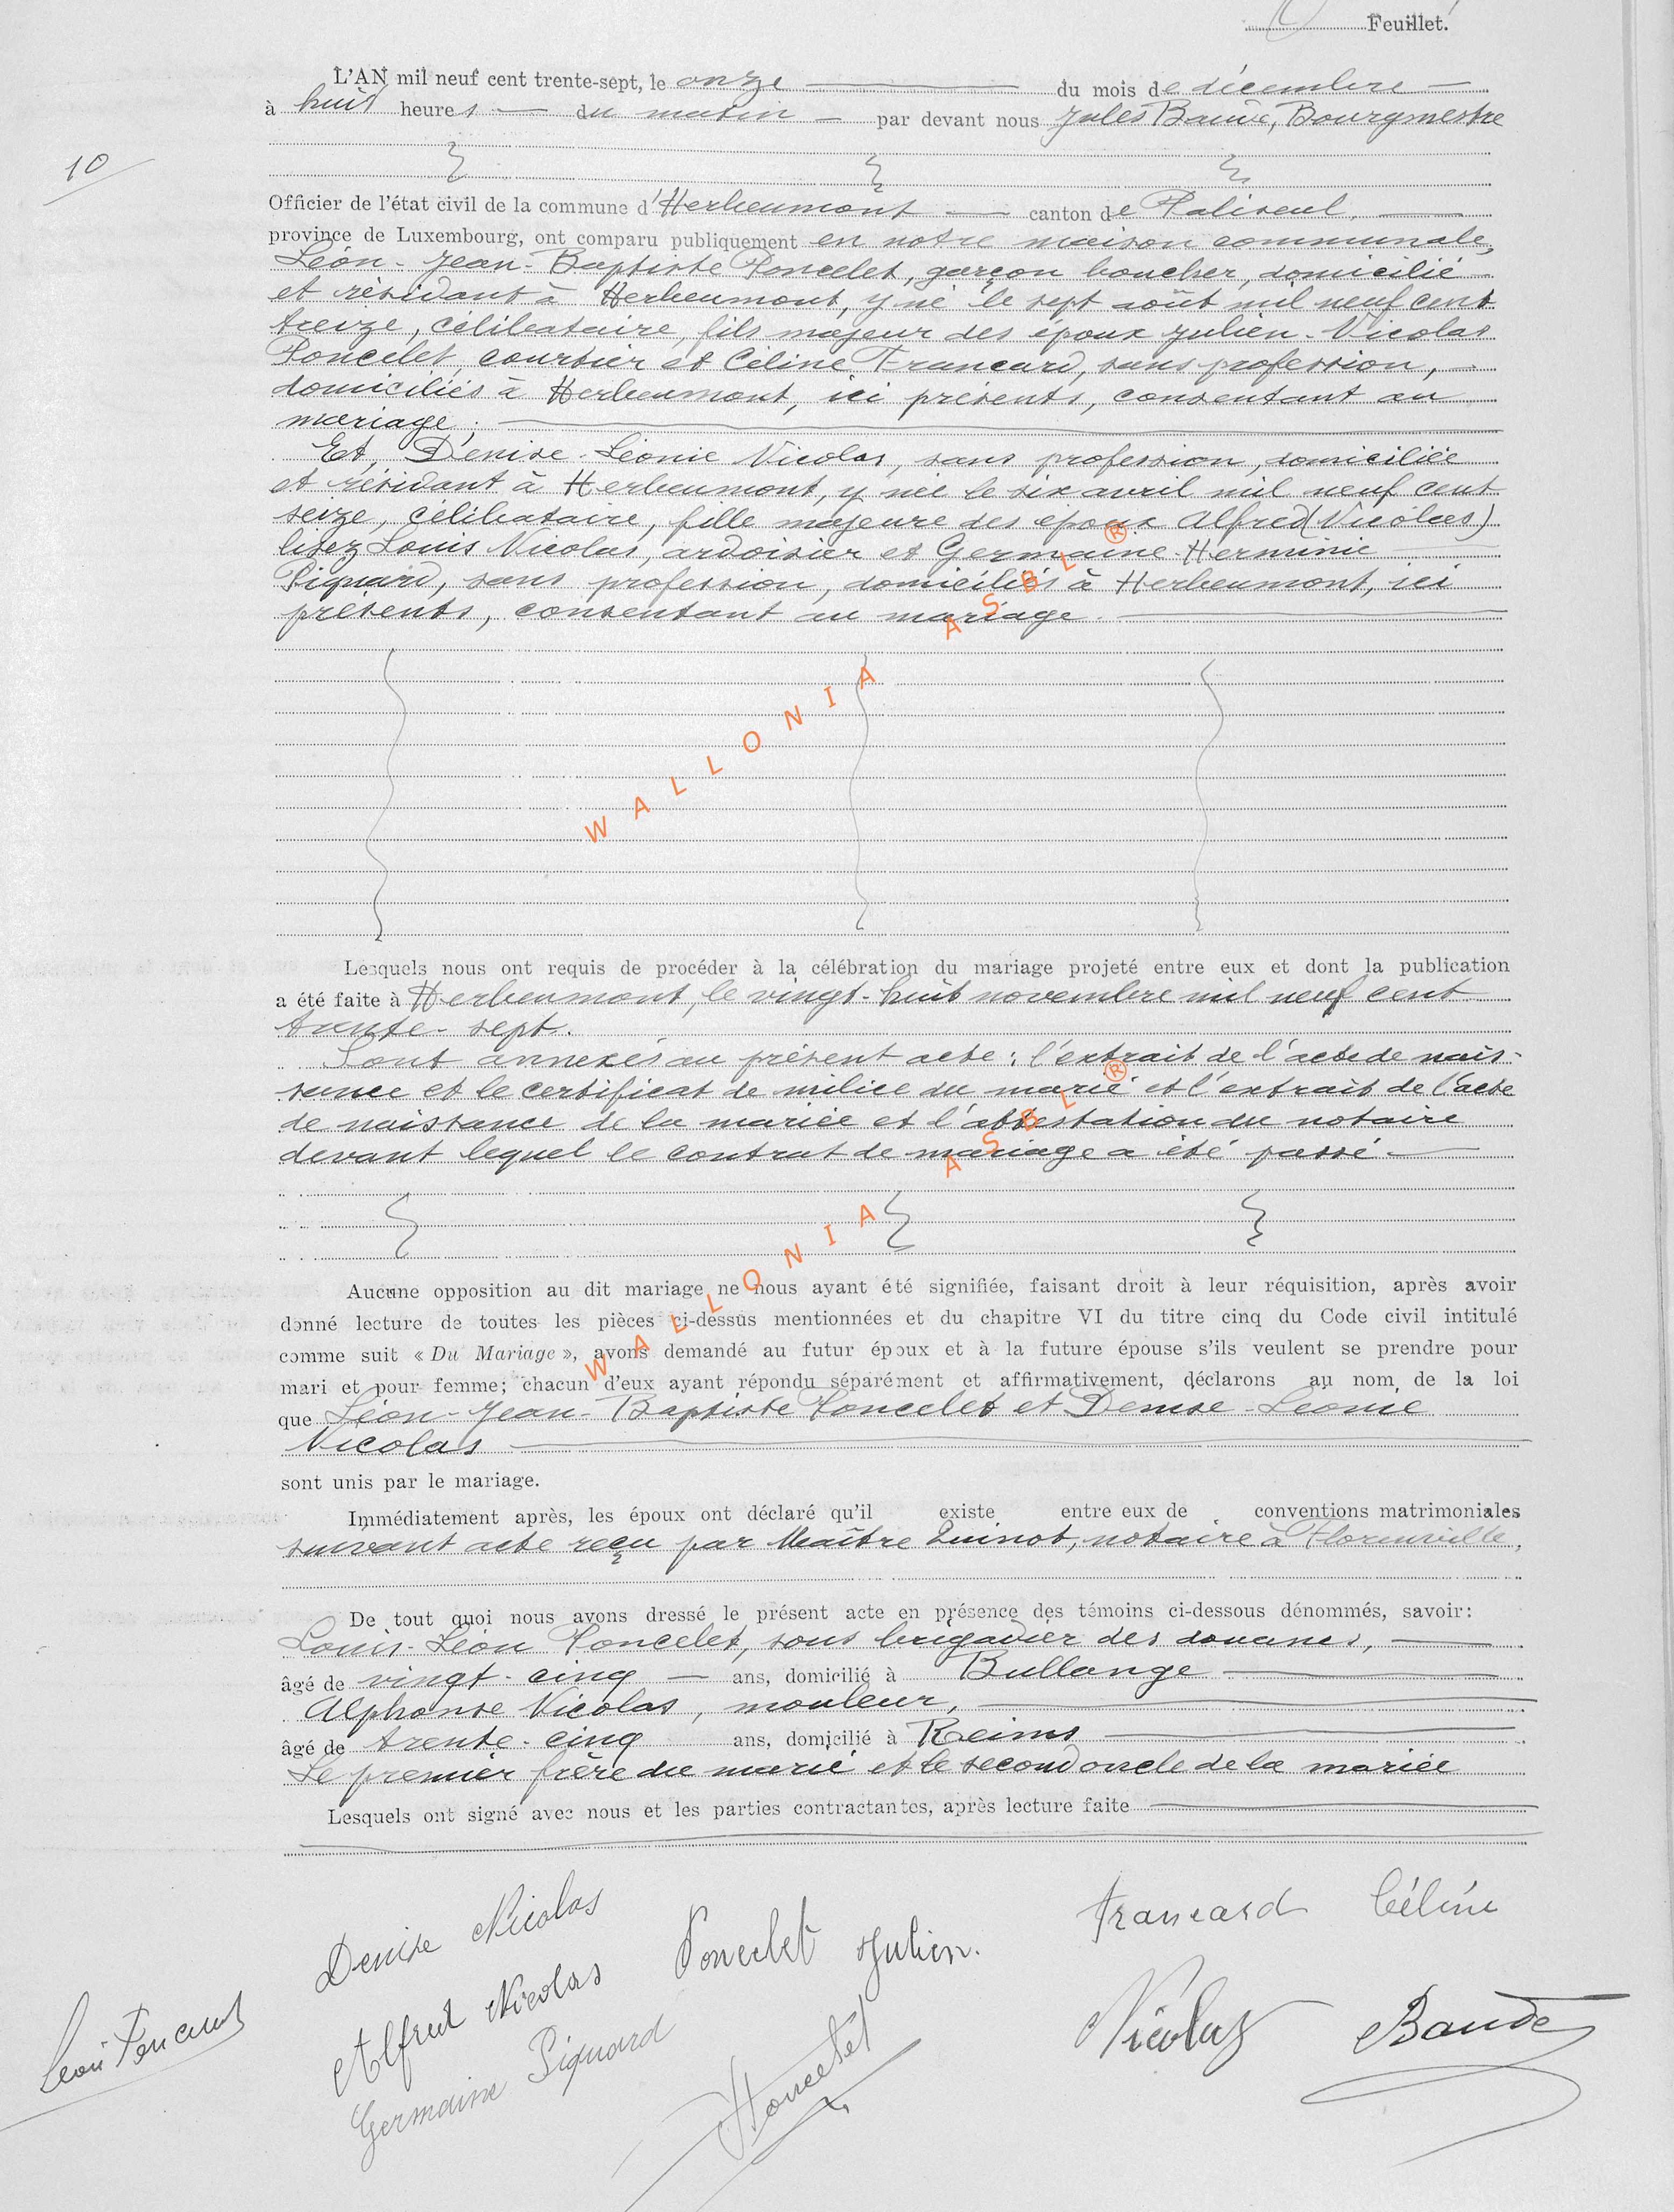 Feuillet.
L'AN mil neuf cent trente-sept, le onze du mois de décembre
à huit heures du matin par devant nous Jules Baudé, Bourgmestre
10
Officier de l'état civil de la commune d'Herbeumont canton de Paliseul,
province de Luxembourg, ont comparu publiquement en notre maison communale,
Léon-Jean-Baptiste Poncelet, garçon boucher, domicilié
et résidant à Herbeumont, y né le sept août mil neuf cent
treize, célibataire, fils majeur des époux Julien-Nicolas
Poncelet, courtier et Céline Francard, sans profession,
domiciliés à Herbeumont, ici présents, consentant au
mariage;
Et, Denise-Léonie Nicolas, sans profession, domiciliée
et résidant à Herbeumont, y née le six avril mil neuf cent
seize, célibataire, fille majeure des époux Alfred (Nicolas)
lisez Louis Nicolas, ardoisier et Germaine-Herminie
Piquard, sans profession, domiciliés à Herbeumont, ici
présents, consentant au mariage.
WALLONIA ASBL ®
Lesquels nous ont requis de procéder à la célébration du mariage projeté entre eux et dont la publication
a été faite à Herbeumont, le vingt-huit novembre mil neuf cent
trente-sept.
Sont annexés au présent acte: l'extrait de l'acte de nais-
sance et le certificat de milice du marié et l'extrait de l'acte
de naissance de la mariée et l'attestation du notaire
devant lequel le contrat de mariage a été passé
WALLONIA ASBL ®
Aucune opposition au dit mariage ne nous ayant été signifiée, faisant droit à leur réquisition, après avoir
donné lecture de toutes les pièces ci-dessus mentionnées et du chapitre VI du titre cinq du Code civil intitulé
comme suit « Du Mariage », avons demandé au futur époux et à la future épouse s'ils veulent se prendre pour
mari et pour femme; chacun d'eux ayant répondu séparément et affirmativement, déclarons au nom de la loi
que Léon-Jean-Baptiste Poncelet et Denise-Léonie
Nicolas
sont unis par le mariage.
Immédiatement après, les époux ont déclaré qu'il existe entre eux de conventions matrimoniales
suivant acte reçu par Maître Quinot, notaire à Florenville,
De tout quoi nous avons dressé le présent acte en présence des témoins ci-dessous dénommés, savoir:
Louis-Léon Poncelet, sous brigadier des douanes,
âgé de vingt-cinq ans, domicilié à Bullange
Alphonse Nicolas, mouleur,
âgé de trente-cinq ans, domicilié à Reims
Le premier frère du marié et le second oncle de la mariée
Lesquels ont signé avec nous et les parties contractantes, après lecture faite
Denise Nicolas
Francard Céline
Poncelet Julien.
Alfred Nicolas
Léon Poncelet
Germaine Piquard
Poncelet
Nicolas
Baudé